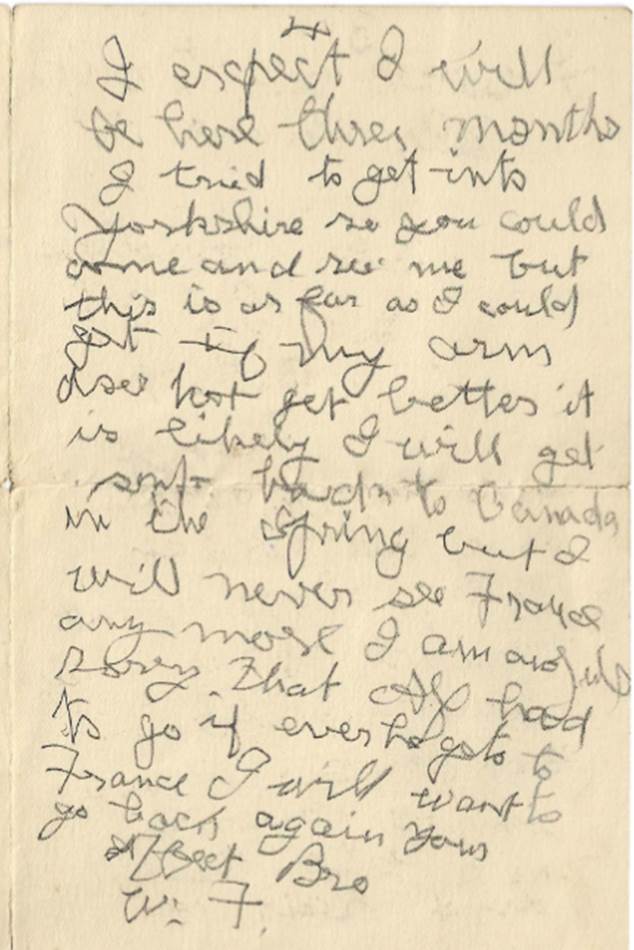 4
I expect I will
be here three months
I tried to get into
Yorkshire so you could
come and see me but
this is as far as I could
get if my arm
dose not get better it
is likely I will get
sent back to Canada
in the spring but I
will never see France
any more I am awful
sorry that Alf had
to go if ever he gets to
France I will want to
go back again Your
Affect Bro
W. F.